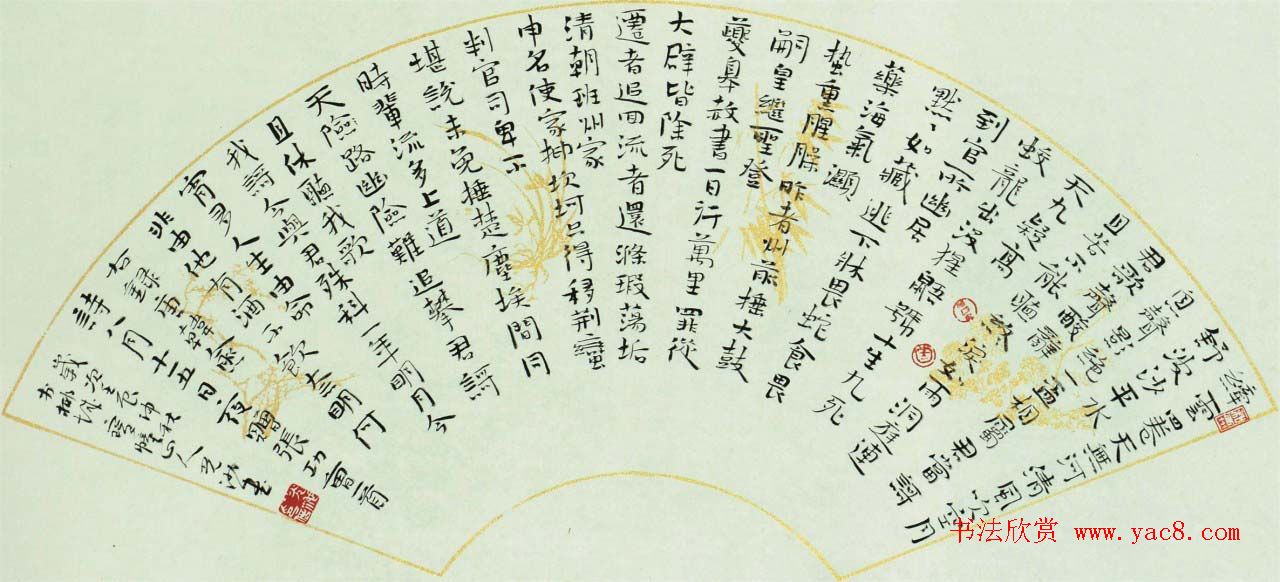 纖雲四卷天無河清風吹空月
舒波沙平水
息聲影絶一杯相屬君當謌
君歌聲酸辭
且苦不能聽終淚如雨洞庭連
天九疑高
蛟龍出沒猩鼯號十生九死
到官所幽居
默〻如藏逃下牀畏蛇食畏
藥海氣濕
蟄熏腥臊昨者州前捶大鼓
嗣皇繼聖登
夔皋赦書一日行萬里罪從
大辟皆除死
遷者追回流者還滌瑕蕩垢
清朝班州家
申名使家抑坎坷只得移荊蠻
判官司卑不
堪說未免捶楚塵埃間同
時輩流多上道
天險路幽險難追攀君謌
且休聽我歌
我謌今與君殊科一年明月今
宵多人生由命
非由他有酒不飲奈明何
右錄唐韓愈
詩八月十五日夜贈張功曹首
书法欣赏 www.yac8.com